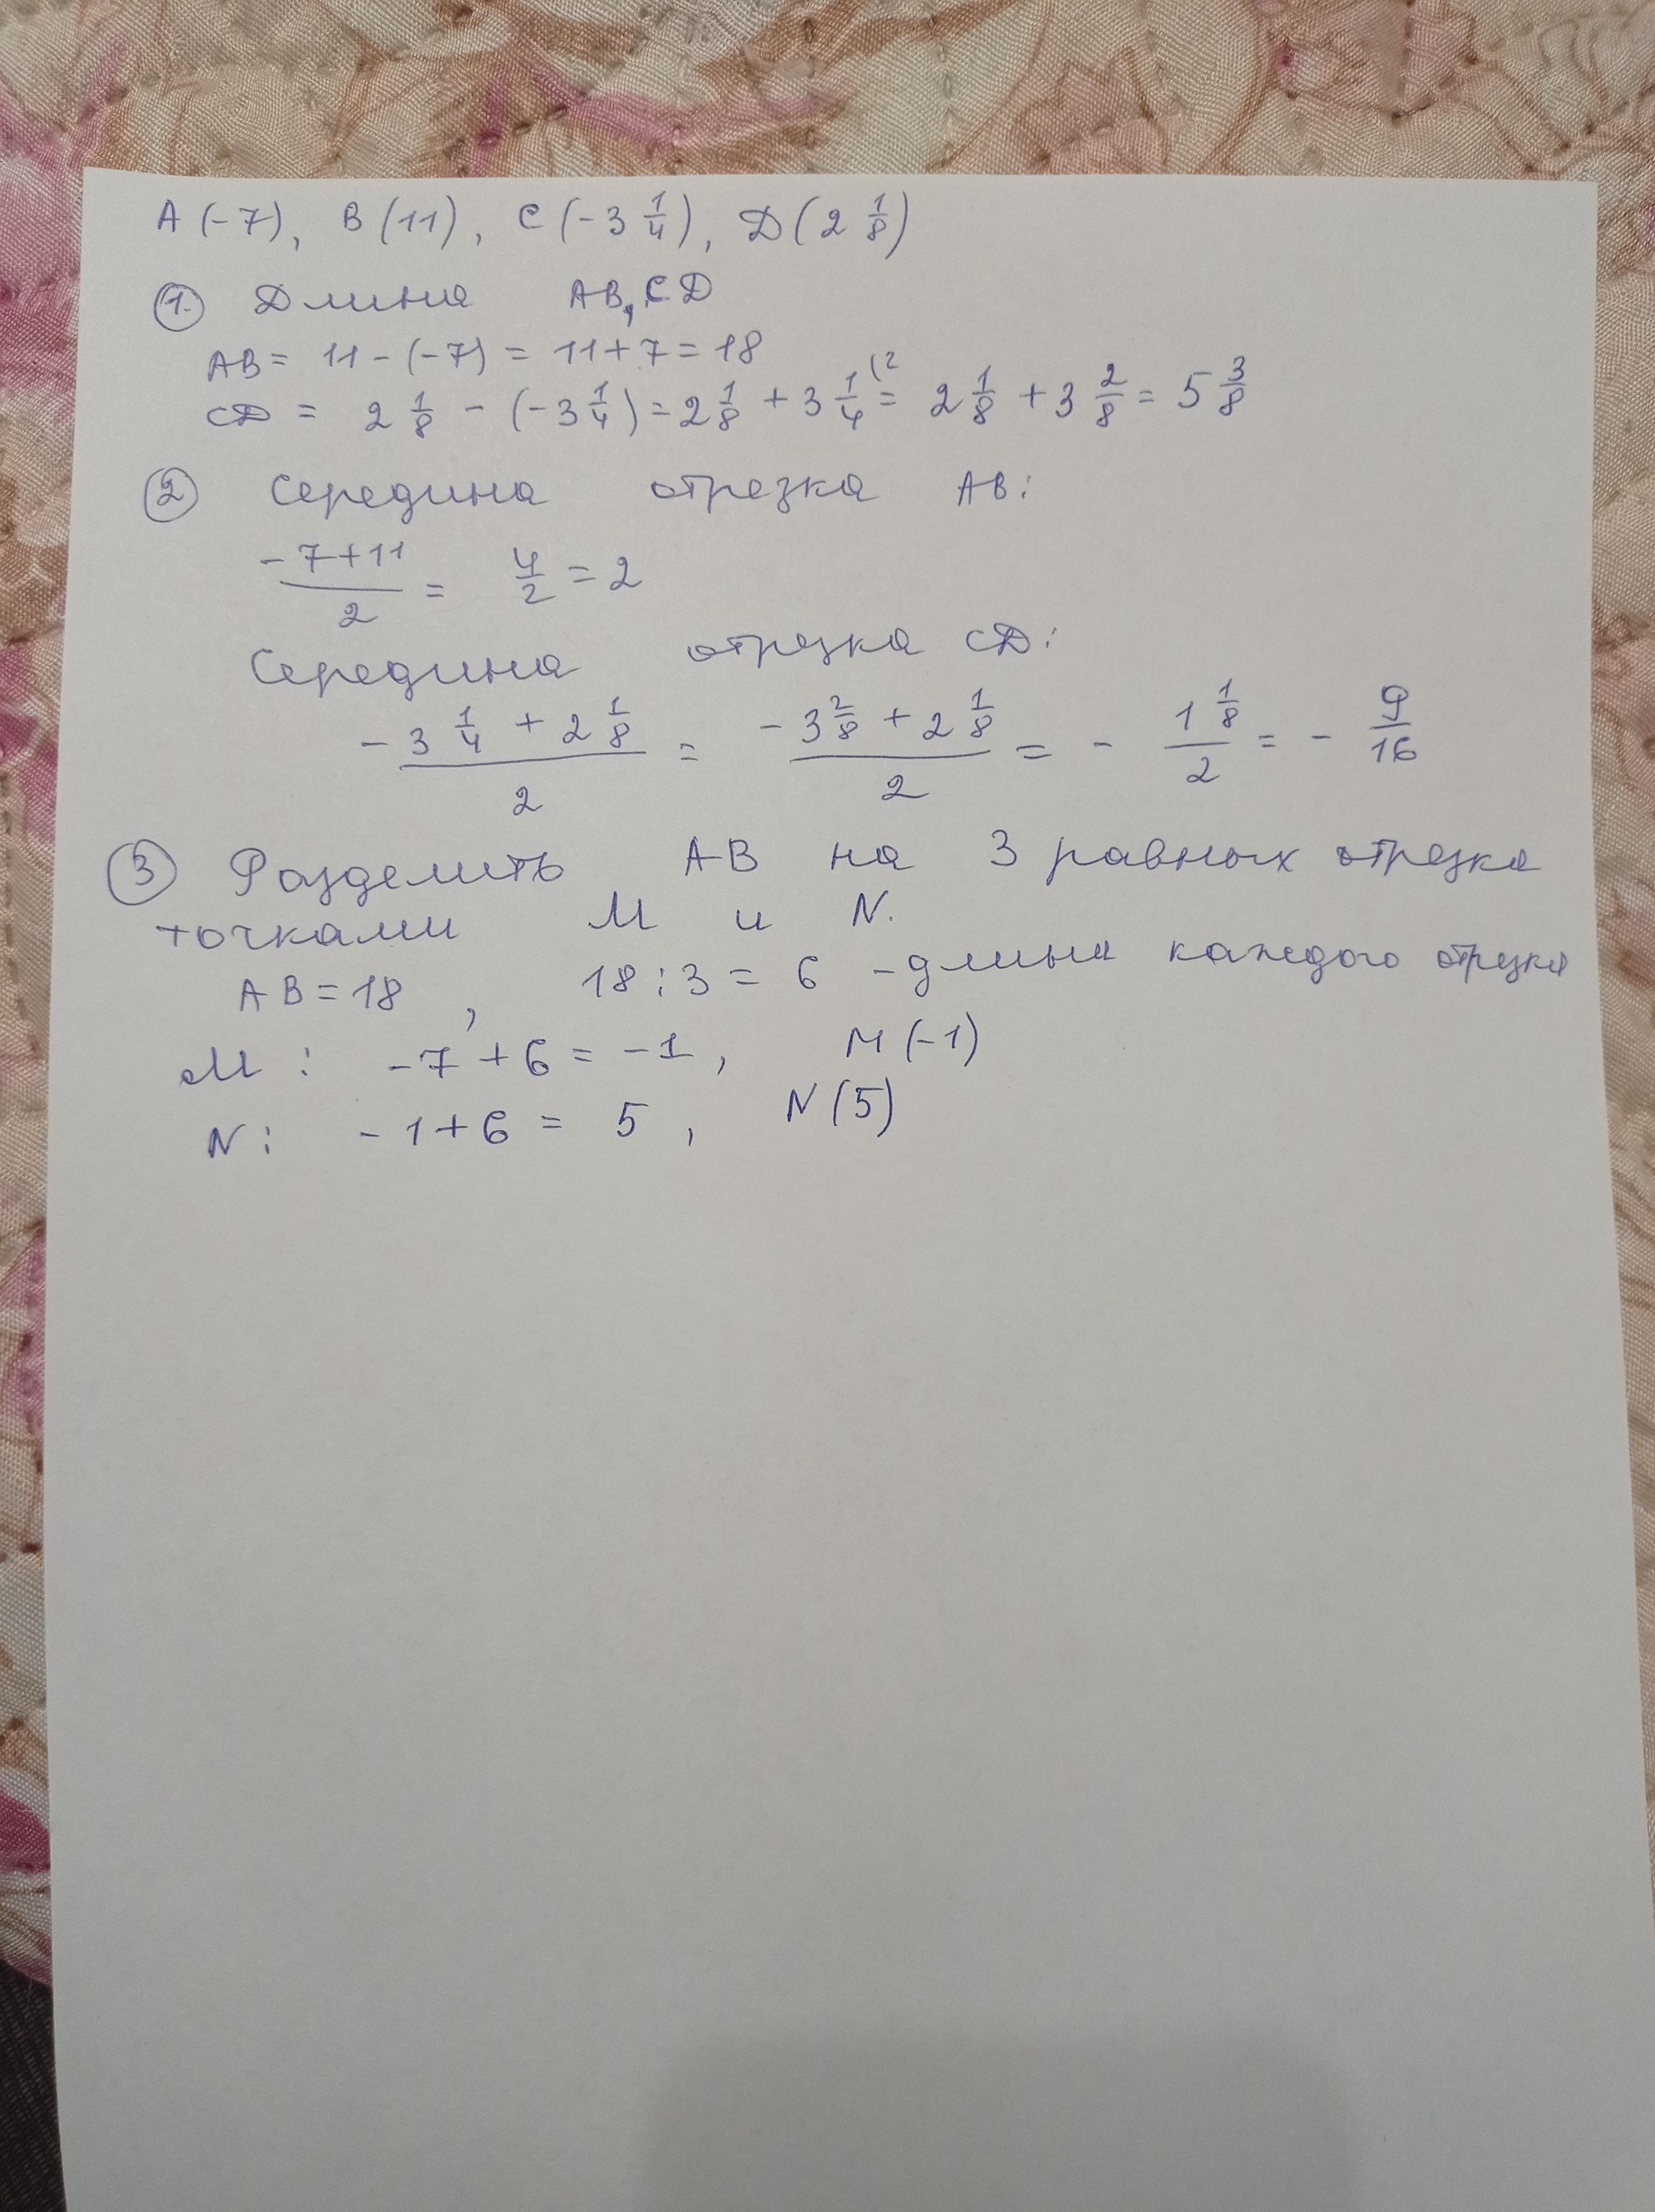 А (-7), В (11), С (-3 1/4), Д (2 1/8)
1. Длина АВ, СД
АВ = 11 - (-7) = 11 + 7 = 18
СД = 2 1/8 - (-3 1/4) = 2 1/8 + 3 1/4 (2 = 2 1/8 + 3 2/8 = 5 3/8
2 Середина отрезка АВ:
(-7+11)/2 = 4/2 = 2
Середина отрезка СД:
(-3 1/4 + 2 1/8)/2 = (-3 2/8 + 2 1/8)/2 = - (1 1/8)/2 = - 9/16
3 Разделить АВ на 3 равных отрезка
точками М и N.
АВ = 18, 18 : 3 = 6 - длина каждого отрезка
М : -7 + 6 = -1, М (-1)
N : -1 + 6 = 5, N (5)